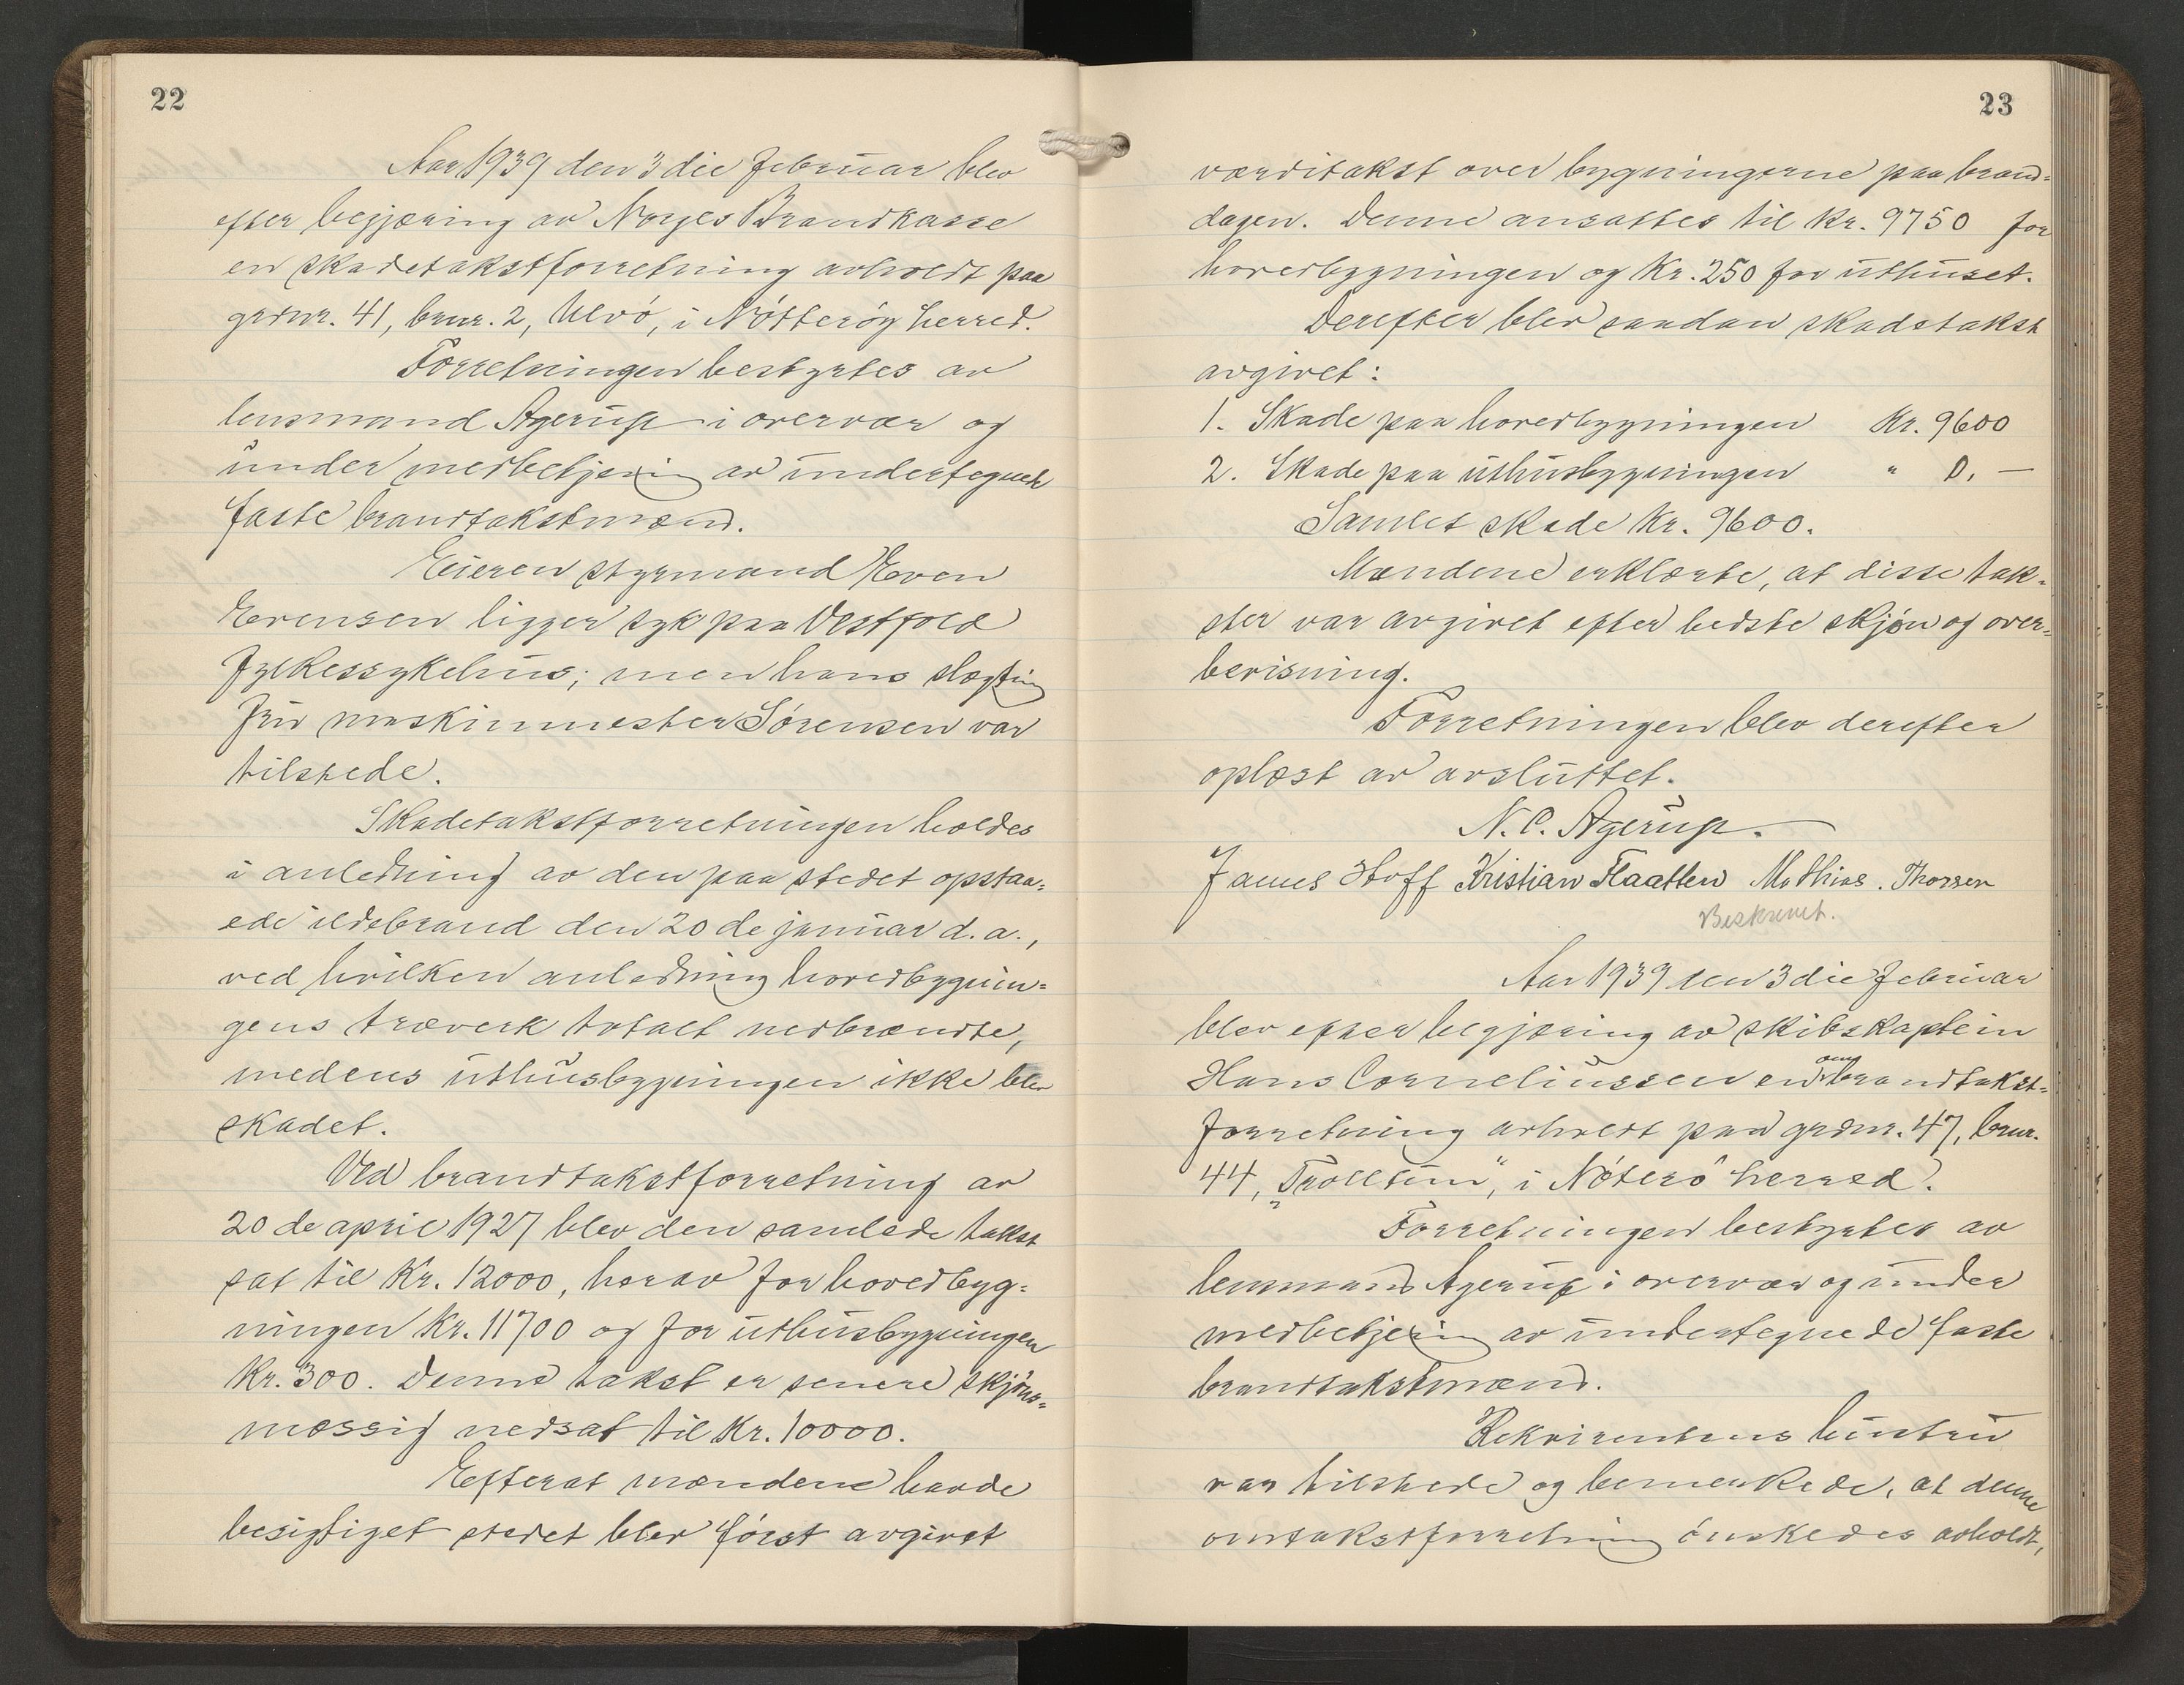 22
Aar 1939 den 3die februar blev
efter begjæring av Norges Brandkasse
en skadetakstforretning avholdt paa
grdnr. 41, brnr. 2, Ulvö, i Nötteröy herred.
Forretningen bestyrtes av
lensmand Agerup i overvær og
under medbetjening av undertegnede
faste brandtakstmænd.
Eieren styrmand Even
Evensen ligger syk paa Vestfold
fylkessykehus; men hans slægtning
fru maskinmester Sörensen var
tilstede.
Skadetakstforretningen holdes
i anledning av den paa stedet opstaa-
ede ildebrand den 20de januar d.a.,
ved hvilken anledning hovedbygnin-
gens træverk totalt nedbrændte,
medens uthusbygningen ikke blev
skadet.
Ved brandtakstforretning av
20de april 1927 blev den samlede takst
sat til Kr. 12000, herav for hovedbyg-
ningen Kr. 11700 og for uthusbygningen
Kr. 300. Denne takst er senere skjöns-
mæssig nedsat til Kr. 10000.
Efterat mændene havde
besigtiget stedet blev först avgivet
23
værditakst over bygningerne paa brand-
dagen. Denne ansattes til Kr. 9750 for
hovedbygningen og Kr. 250 for uthuset.
Derefter blev saadan skadetakst
avgivet:
1. Skade paa hovedbygningen Kr. 9600
2. Skade paa uthusbygningen " 0. —
Samlet skade Kr. 9600.
Mændene erklærte, at disse tak-
ster var avgivet efter bedste skjön og over-
bevisning.
Forretningen blev derefter
oplæst av avsluttet.
N. C. Agerup.
James Hoff Kristian Flaatten Mathias. Thorsen
Beskrevet.
Aar 1939 den 3die februar
blev efter begjæring av skibskaptein
Hans Corneliussen en ombrandtakst-
forretning avholdt paa grdnr. 47, brnr.
44, „Trolltun", i Nöterö herred.
Forretningen bestyrtes av
lensmand Agerup i overvær og under
medbetjening av undertegnede faste
brandtakstmænd.
Rekvirentens hustru
var tilstede og bemerkede, at denne
omtakstforretning önskedes avholdt,